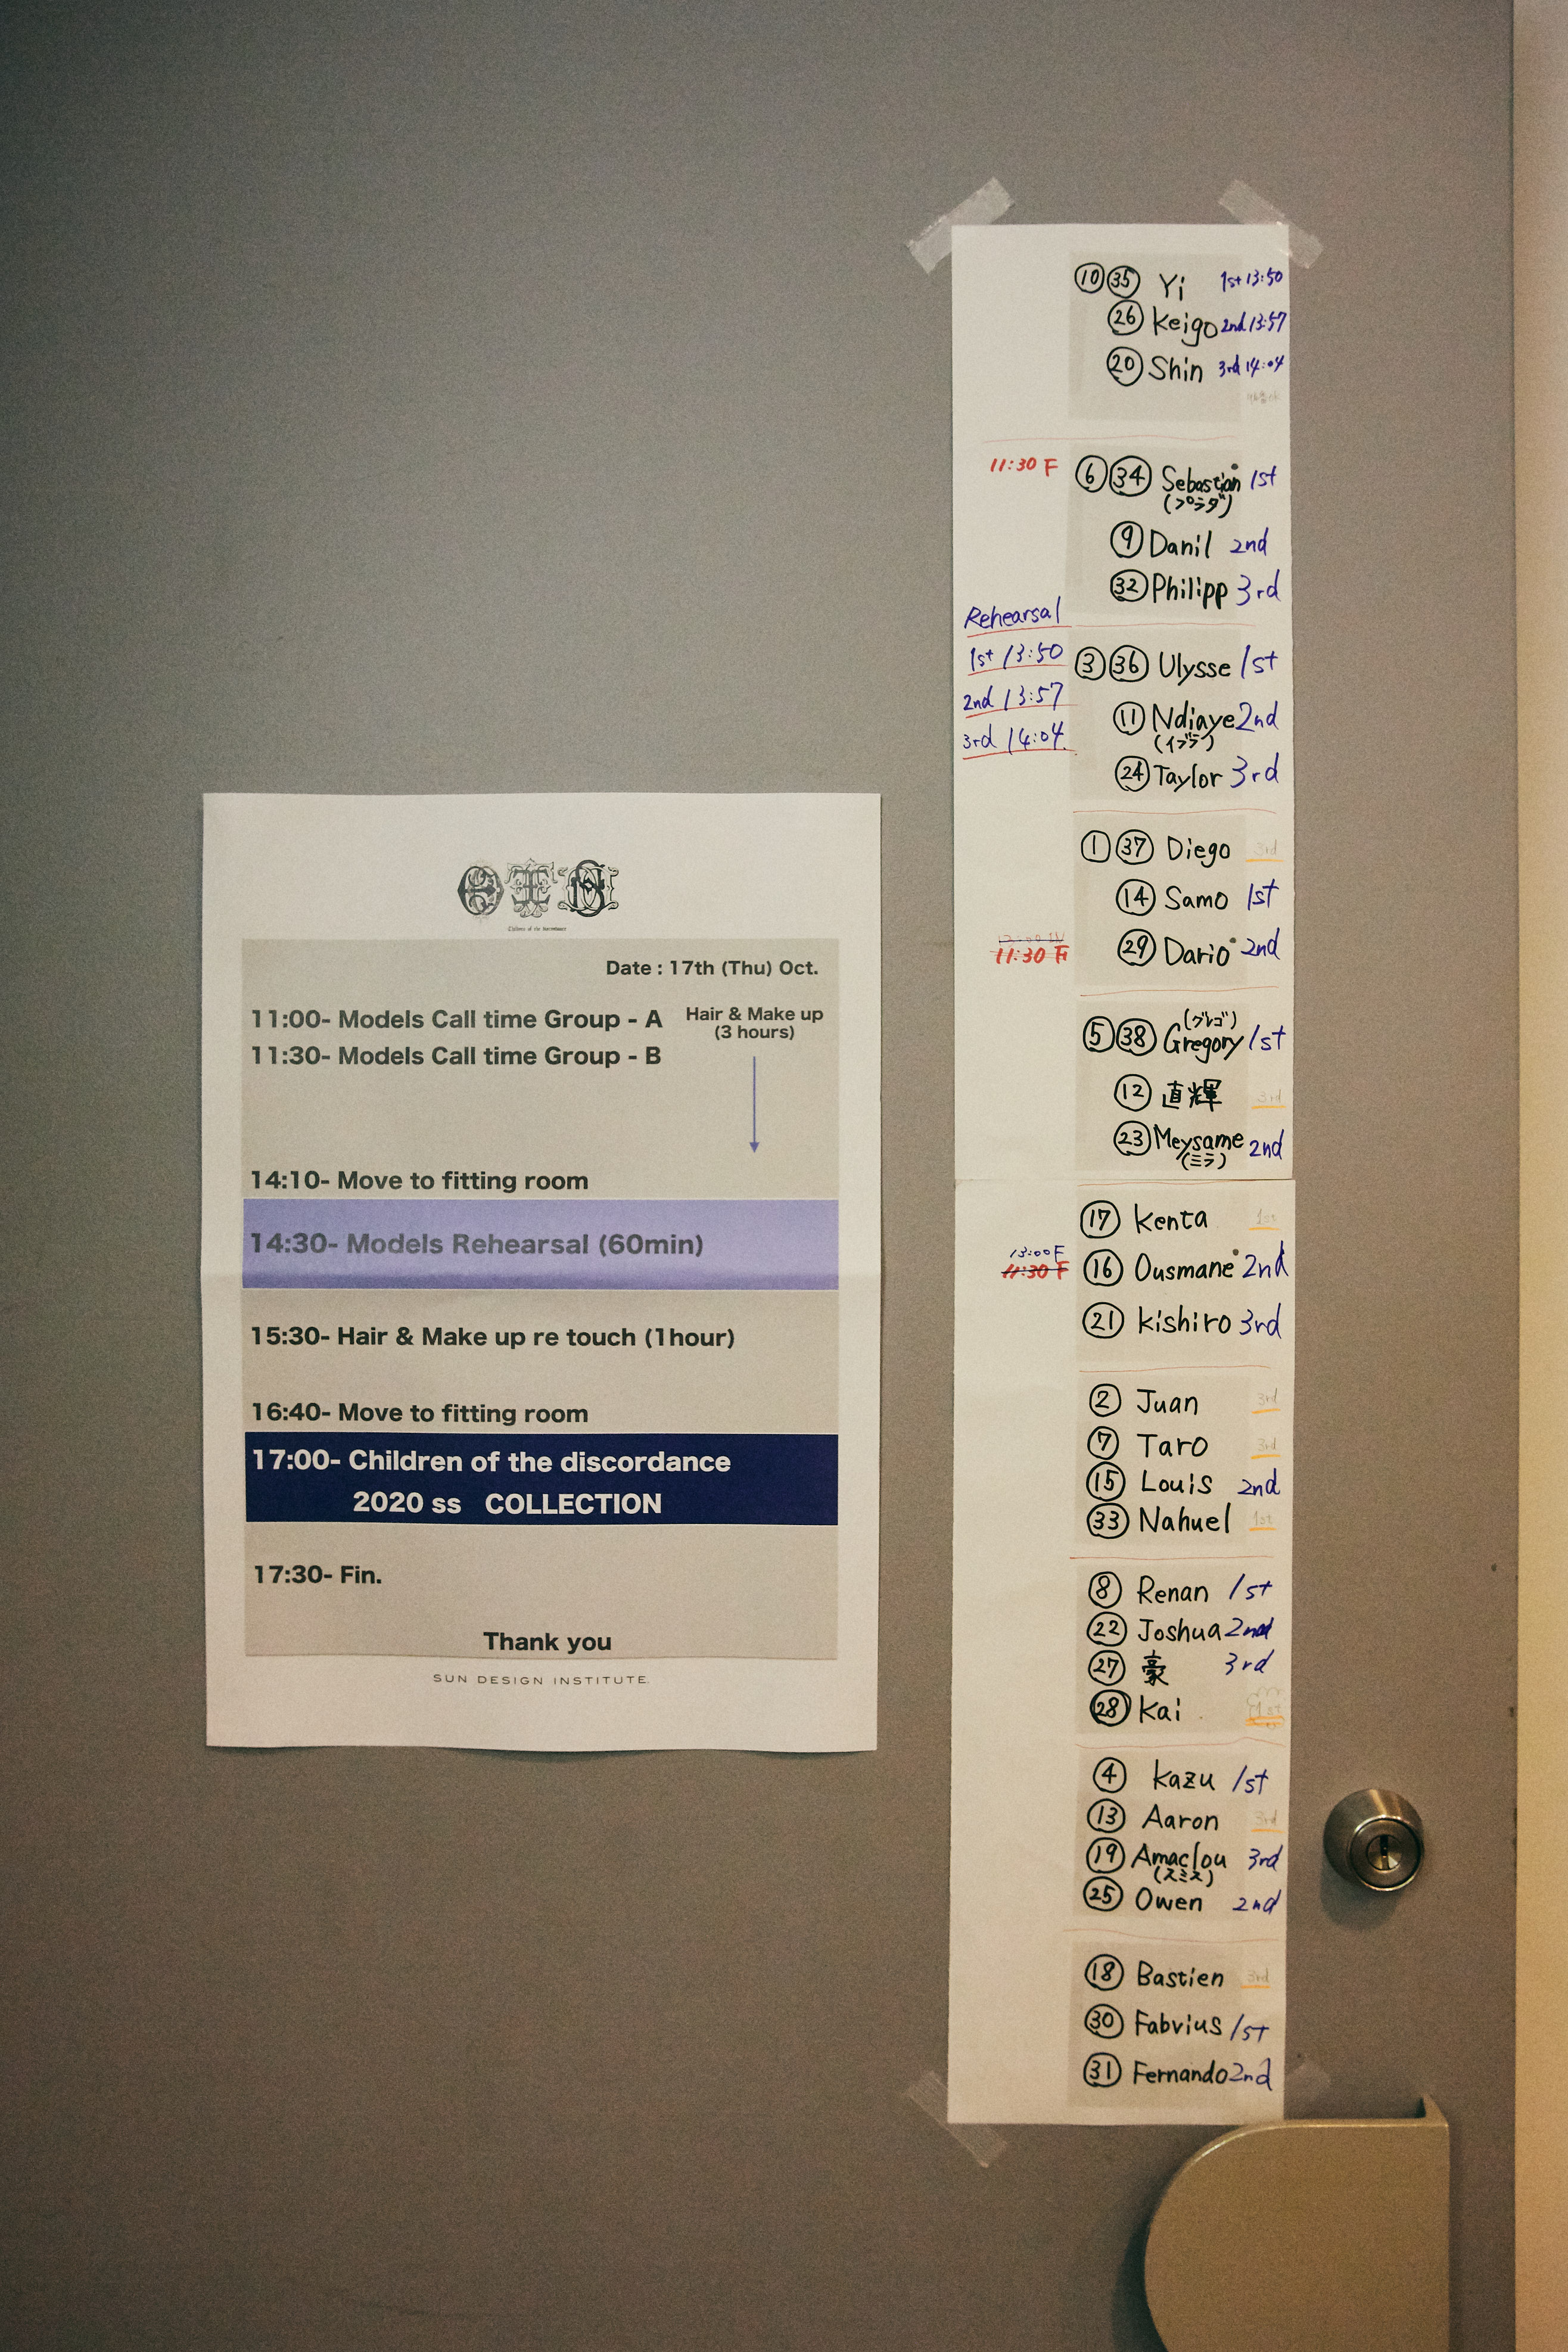 Children of the discordance
Date : 17th (Thu) Oct.
11:00- Models Call time Group - A
Hair & Make up
(3 hours)
11:30- Models Call time Group - B
14:10- Move to fitting room
14:30- Models Rehearsal (60min)
15:30- Hair & Make up re touch (1hour)
16:40- Move to fitting room
17:00- Children of the discordance
2020 ss COLLECTION
17:30- Fin.
Thank you
SUN DESIGN INSTITUTE
⑩ ㉟ Yi 1st 13:50
㉖ Keigo 2nd 13:57
⑳ Shin 3rd 14:04
11:30 F ⑥ ㉞ Sebastian 1st
(プラダ)
⑨ Danil 2nd
㉜ Philipp 3rd
Rehearsal
1st 13:50
2nd 13:57
3rd 14:04
③ ㊱ Ulysse 1st
⑪ Ndiaye 2nd
(イブラ)
㉔ Taylor 3rd
① ㊲ Diego 3rd
⑭ Samo 1st
11:30 F ㉙ Dario 2nd
(グレゴ)
⑤ ㊳ Gregory 1st
⑫ 直輝 3rd
㉓ Meysame 2nd
(ミラ)
⑰ Kenta 1st
13:00 F
11:30 F ⑯ Ousmane 2nd
㉑ Kishiro 3rd
② Juan 3rd
⑦ Taro 3rd
⑮ Louis 2nd
㉝ Nahuel 1st
⑧ Renan 1st
㉒ Joshua 2nd
㉗ 豪 3rd
㉘ Kai 1st
④ Kazu 1st
⑬ Aaron 3rd
⑲ Amaclou 3rd
(スミス)
㉕ Owen 2nd
⑱ Bastien 3rd
㉚ Fabrius 1st
㉛ Fernando 2nd